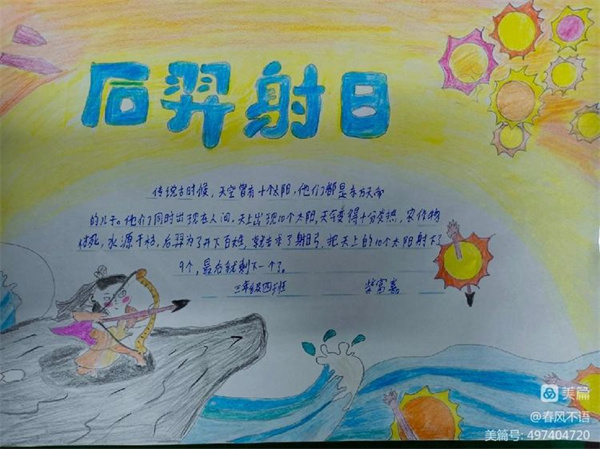 后羿射日
传说古时候，天空曾有十个太阳，他们都是东方天帝
的儿子。他们同时出现在人间，天上出现10个太阳，天气变得十分炎热，农作物
枯死，水源干枯，后羿为了天下百姓，射日，把天上的10个太阳射下了
9个，最后就剩下一个了。
三年级四班
美篇
@春风不语
美篇号: 497404720